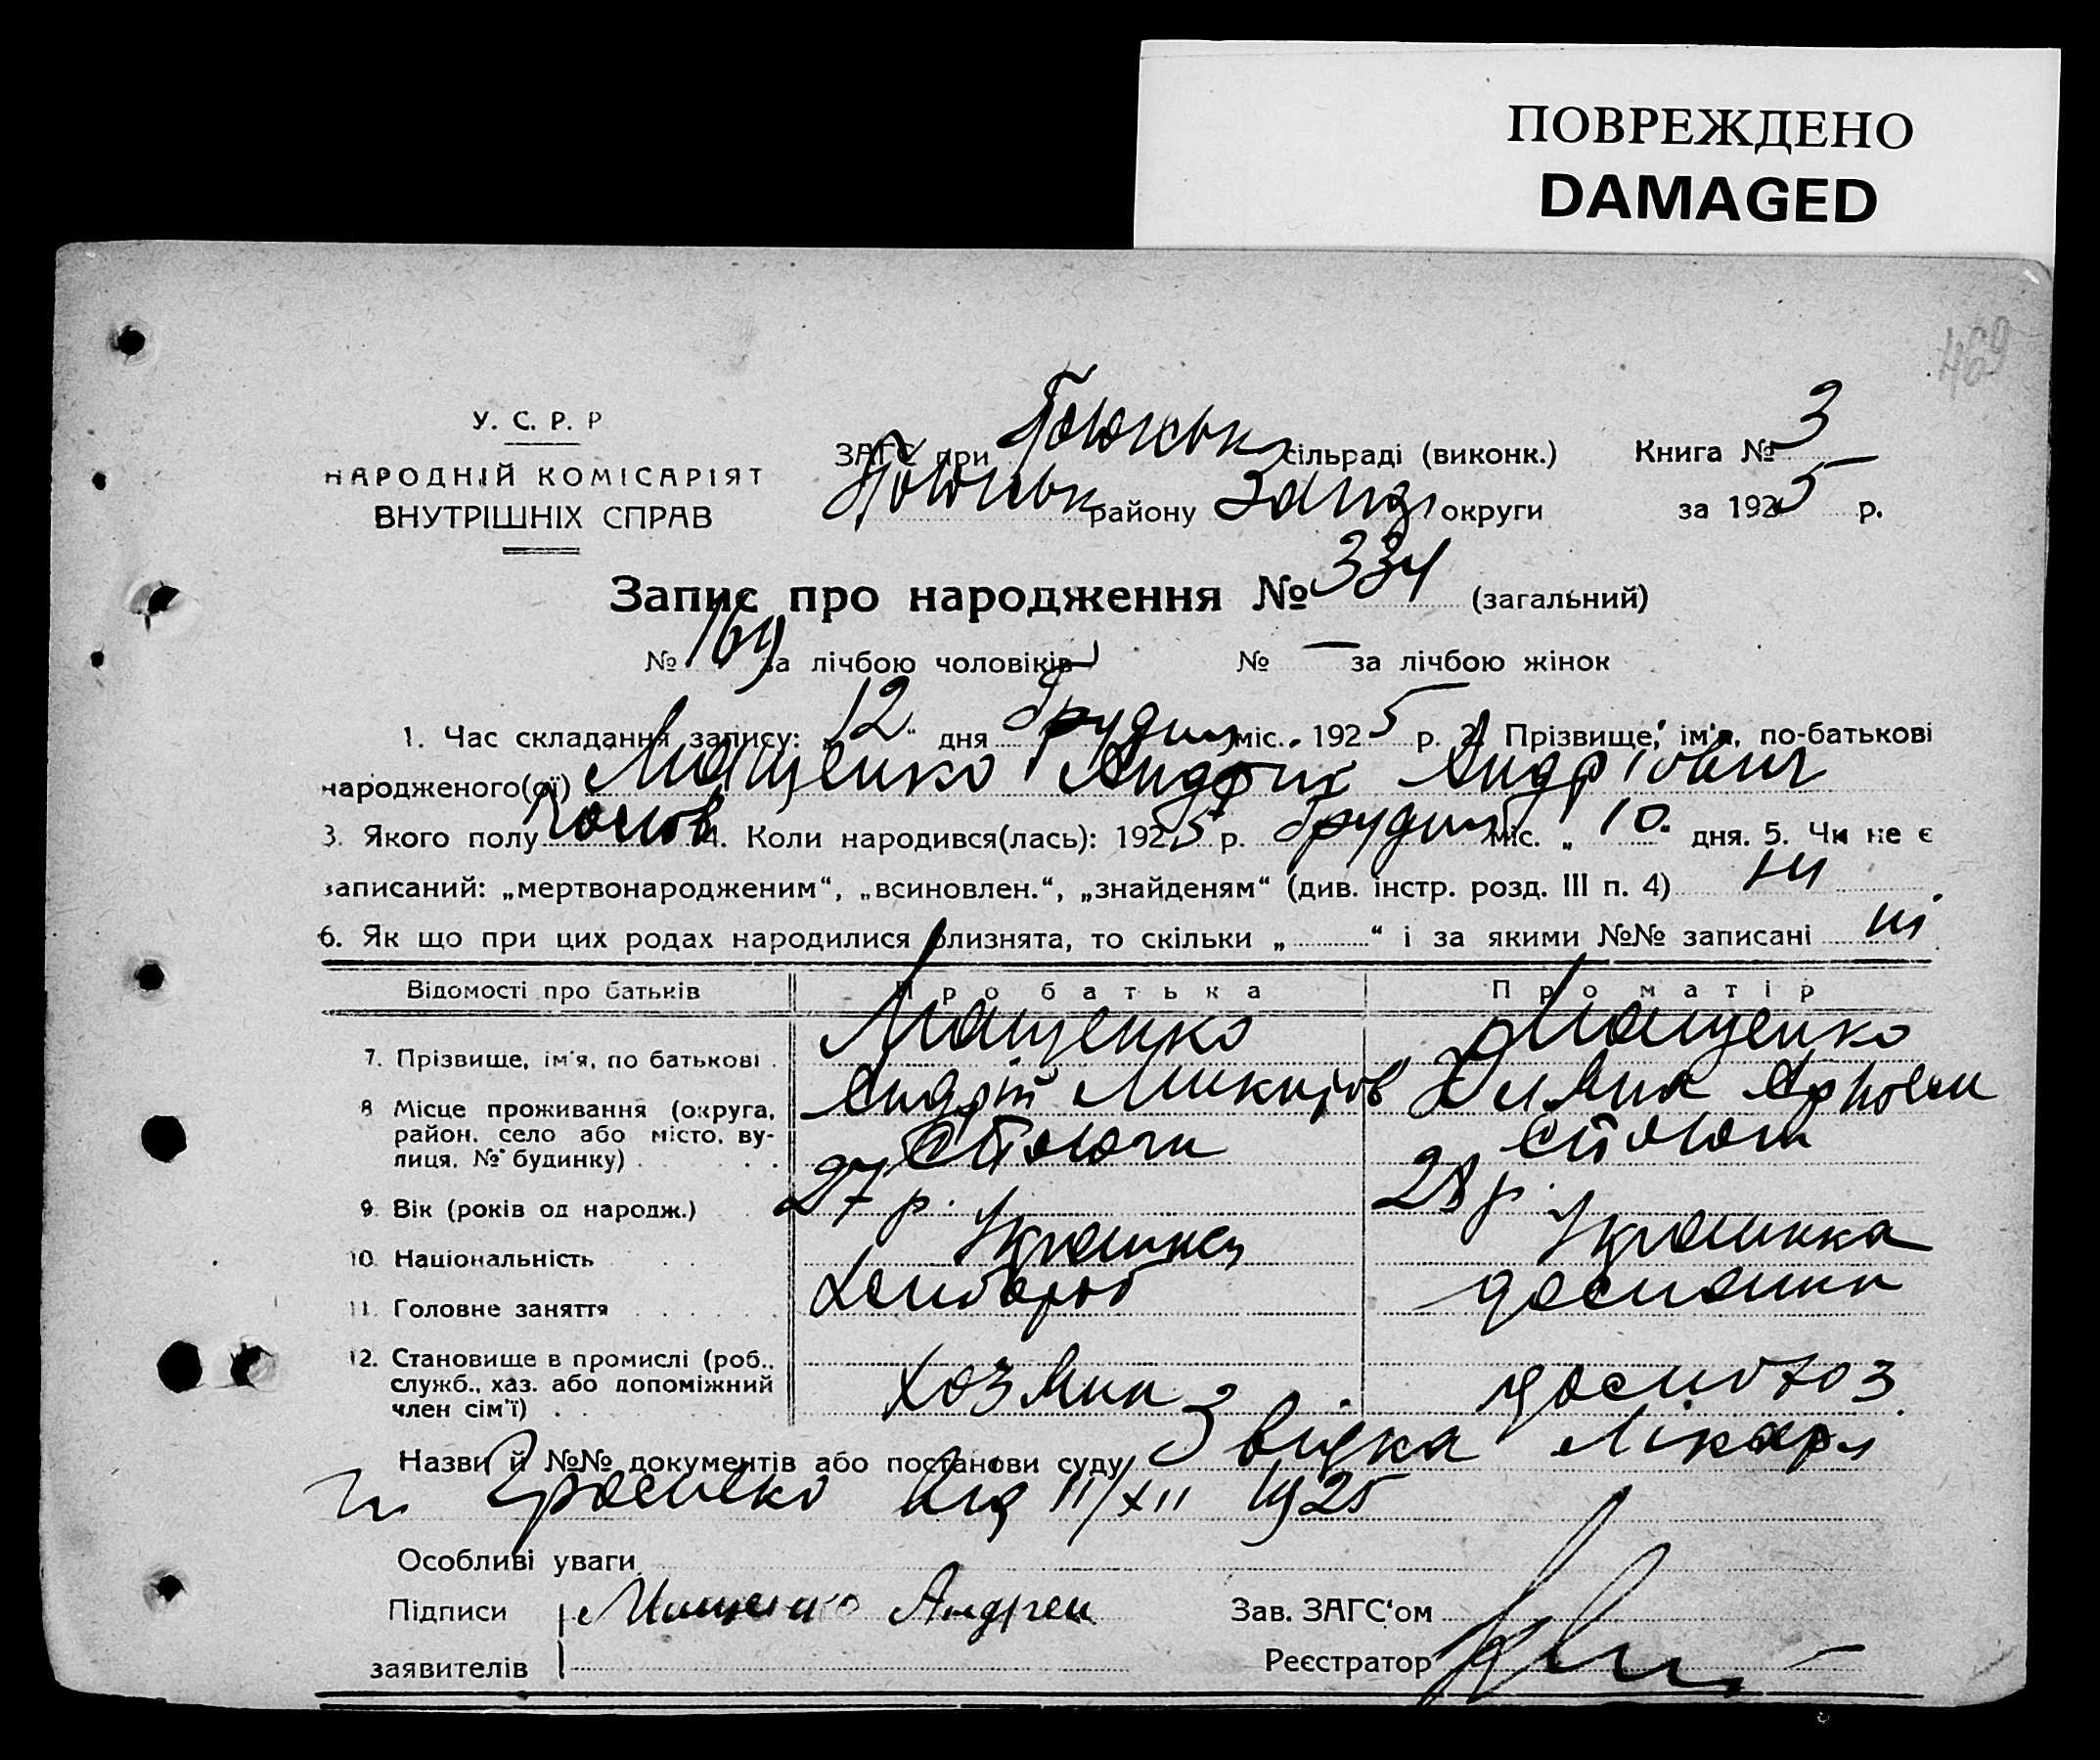 ПОВРЕЖДЕНО
DAMAGED
469
У. С. Р. Р
НАРОДНІЙ КОМІСАРІЯТ
ВНУТРІШНІХ СПРАВ
ЗАГС при сільраді (виконк.)
району округи
Книга № 3
за 1925 р.
Запис про народження № 334 (загальний)
№ 169 за лічбою чоловіків № — за лічбою жінок
1. Час складання запису: „12“ дня грудня міс. 1925 р. 2. Прізвище, ім'я, по-батькові
народженого(ої) Мащенко Андрій Андріович
3. Якого полу чолов 4. Коли народився(лась): 1925 р. грудня міс. „10“ дня. 5. Чи не є
записаний: „мертвонародженим“, „всиновлен.“, „знайденям“ (див. інстр. розд. III п. 4) ні
6. Як що при цих родах народилися близнята, то скільки „ “ і за якими №№ записані ні
Відомості про батьків Про батька Про матір
7. Прізвище, ім'я, по батькові Мащенко Мащенко
Андрій
8 Місце проживання (округа,
район, село або місто, ву-
лиця, № будинку)
9. Вік (років од народж.) 27 р. 28 р.
10. Національність Українец Українка
11. Головне заняття Хлибороб
12. Становище в промислі (роб.,
служб., хаз. або допоміжний
член сім'ї)
Назви й №№ документів або постанови суду Звідка Лікаря
від 11/XII 1925
Особливі уваги
Підписи Мащенко Андрей Зав. ЗАГС'ом
заявителів Реєстратор